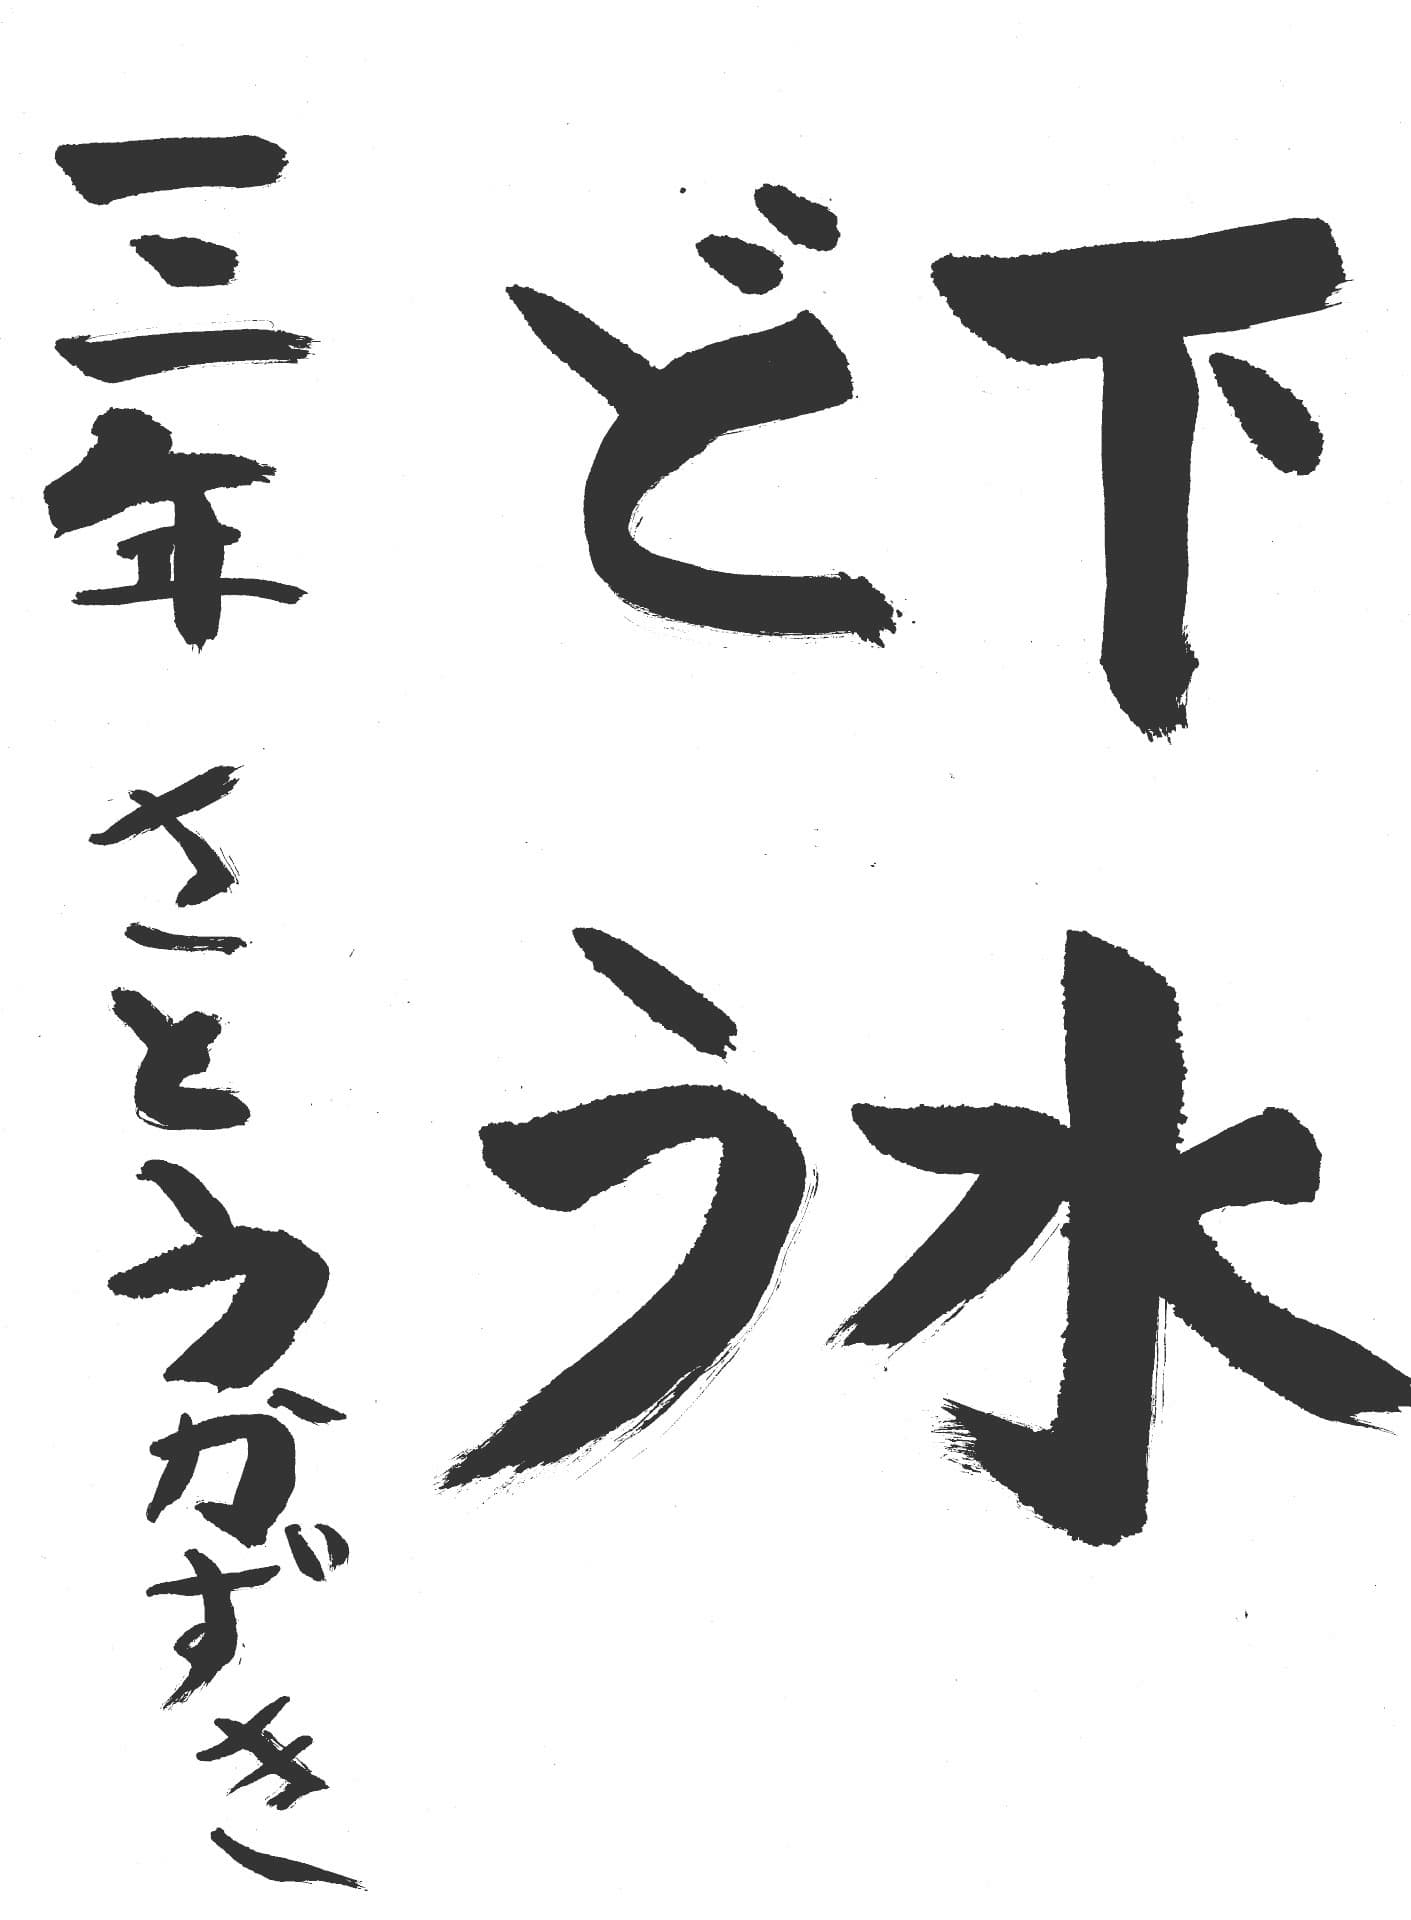 下水
どう
三年 さとうかずき